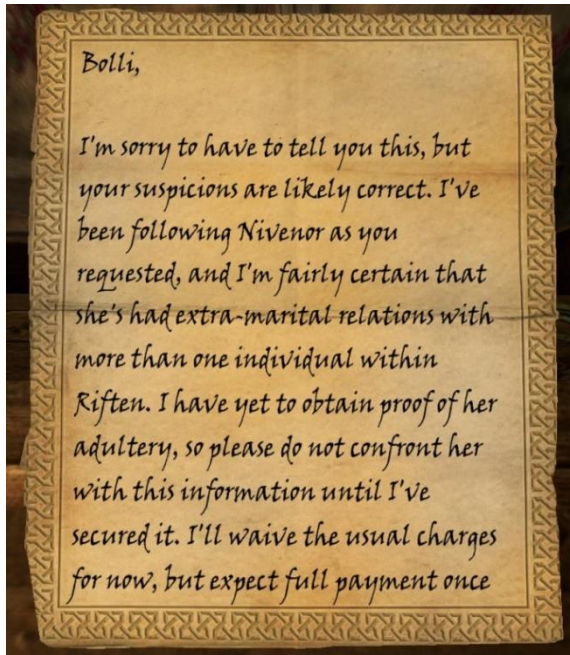 Bolli,
I'm sorry to have to tell you this, but
your suspicions are likely correct. I've
been following Nivenor as you
requested, and I'm fairly certain that
she's had extra-marital relations with
more than one individual within
Riften. I have yet to obtain proof of her
adultery, so please do not confront her
with this information until I've
secured it. I'll waive the usual charges
for now, but expect full payment once